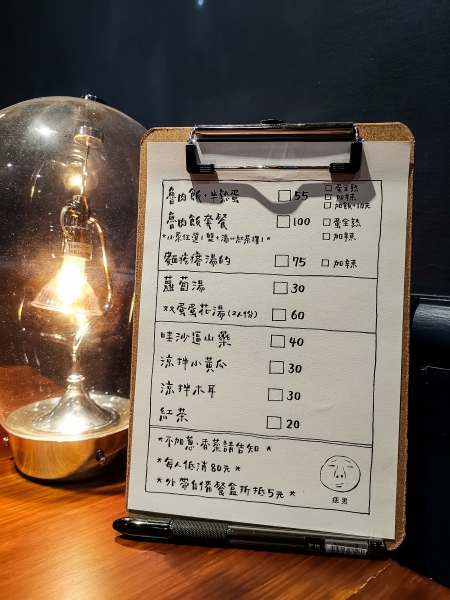 魯肉飯+半熟蛋 □ 55 □ 蛋全熟
□ 加辣
□ 加飯+10元
魯肉飯套餐 □ 100 □ 蛋全熟
*小菜任選1盤+湯or紅茶擇1* □ 加辣
麵疙瘩湯的 □ 75 □ 加辣
蘿蔔湯 □ 30
双蛋蛋花湯(2人份) □ 60
哇沙逼山藥 □ 40
涼拌小黃瓜 □ 30
涼拌木耳 □ 30
紅茶 □ 20
*不加蔥、香菜請告知*
*每人低消80元*
*外帶自備餐盒折抵5元*
痣男